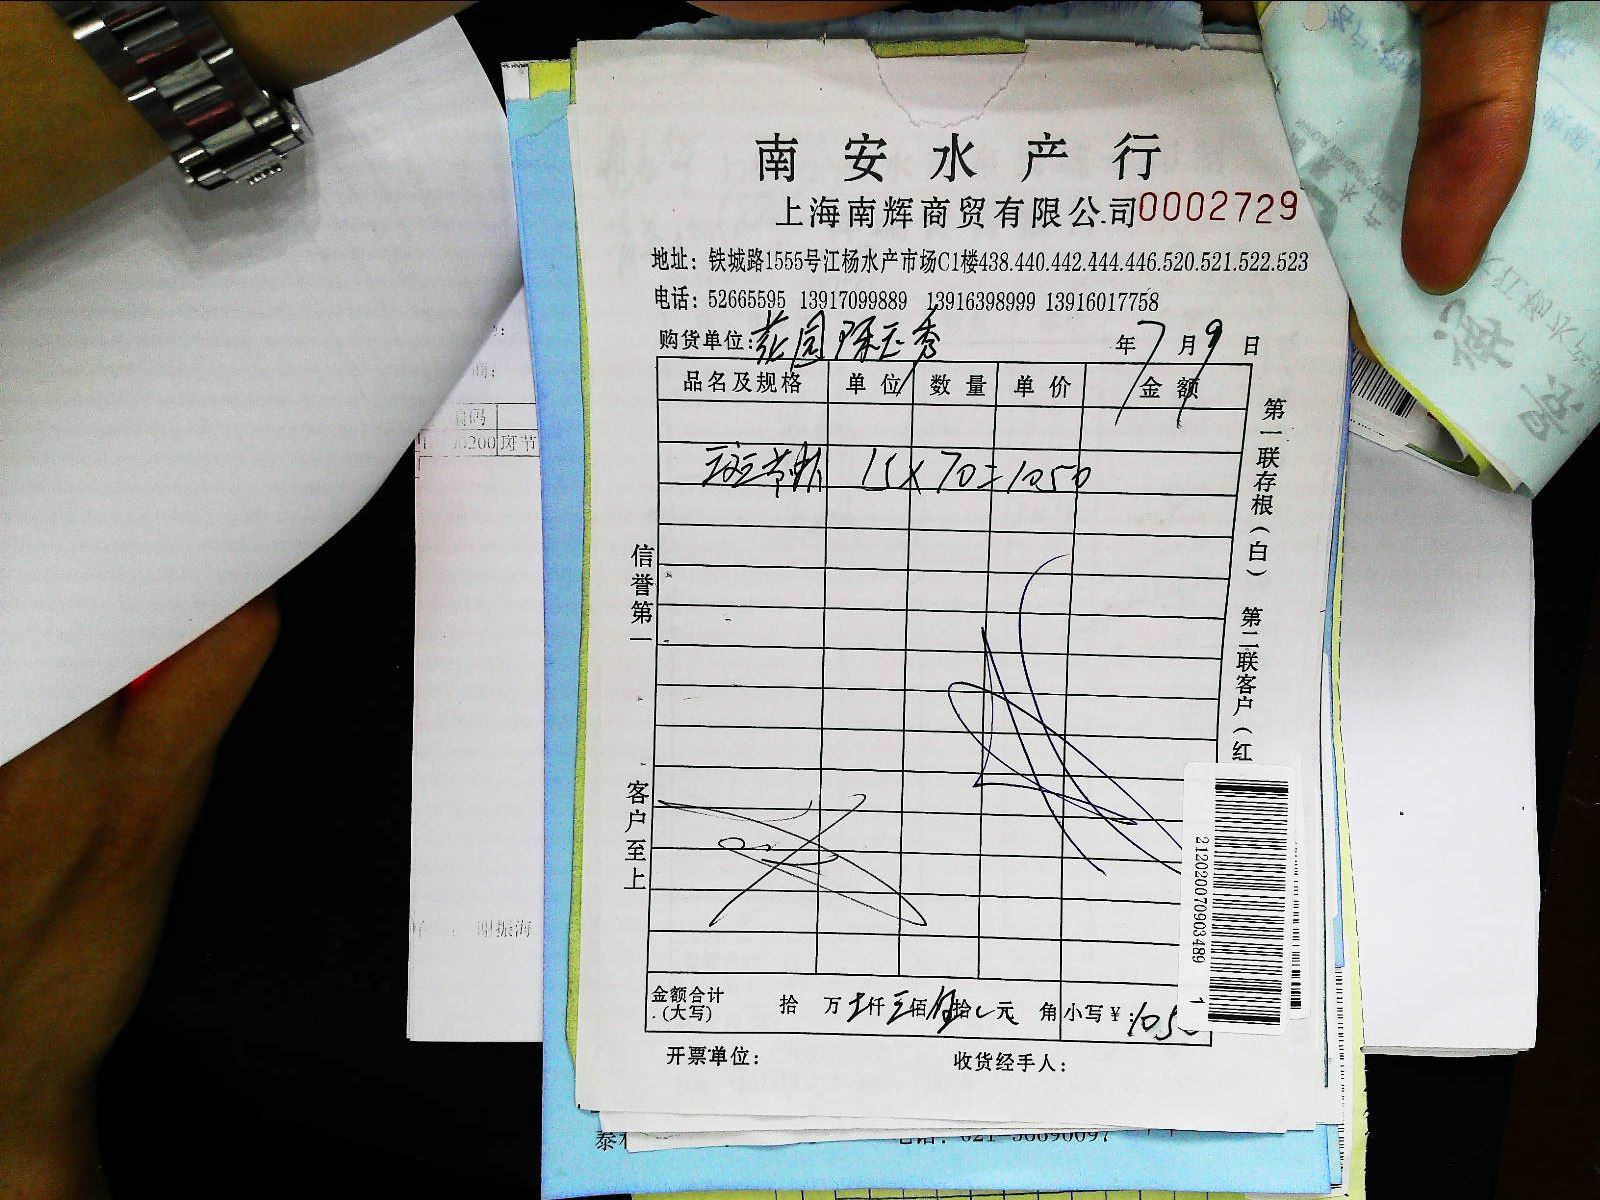 南安水产行
上海南辉商贸有限公司0002729
地址：铁城路1555号江杨水产市场C1楼438.440.442.444.446.520.521.522.523
电话：52665595 13917099889 13916398999 13916017758
购货单位：花园陈玉秀 年7月9日
品名及规格 单位 数量 单价 金额
斑节虾 15×70=1050
信誉第一
客户至上
第一联存根（白） 第二联客户（红
金额合计 拾 万 仟 佰 拾 元 角 小写￥：1050
（大写）
开票单位： 收货经手人：
2120200709034891
编码
90200 斑节
商：
振海